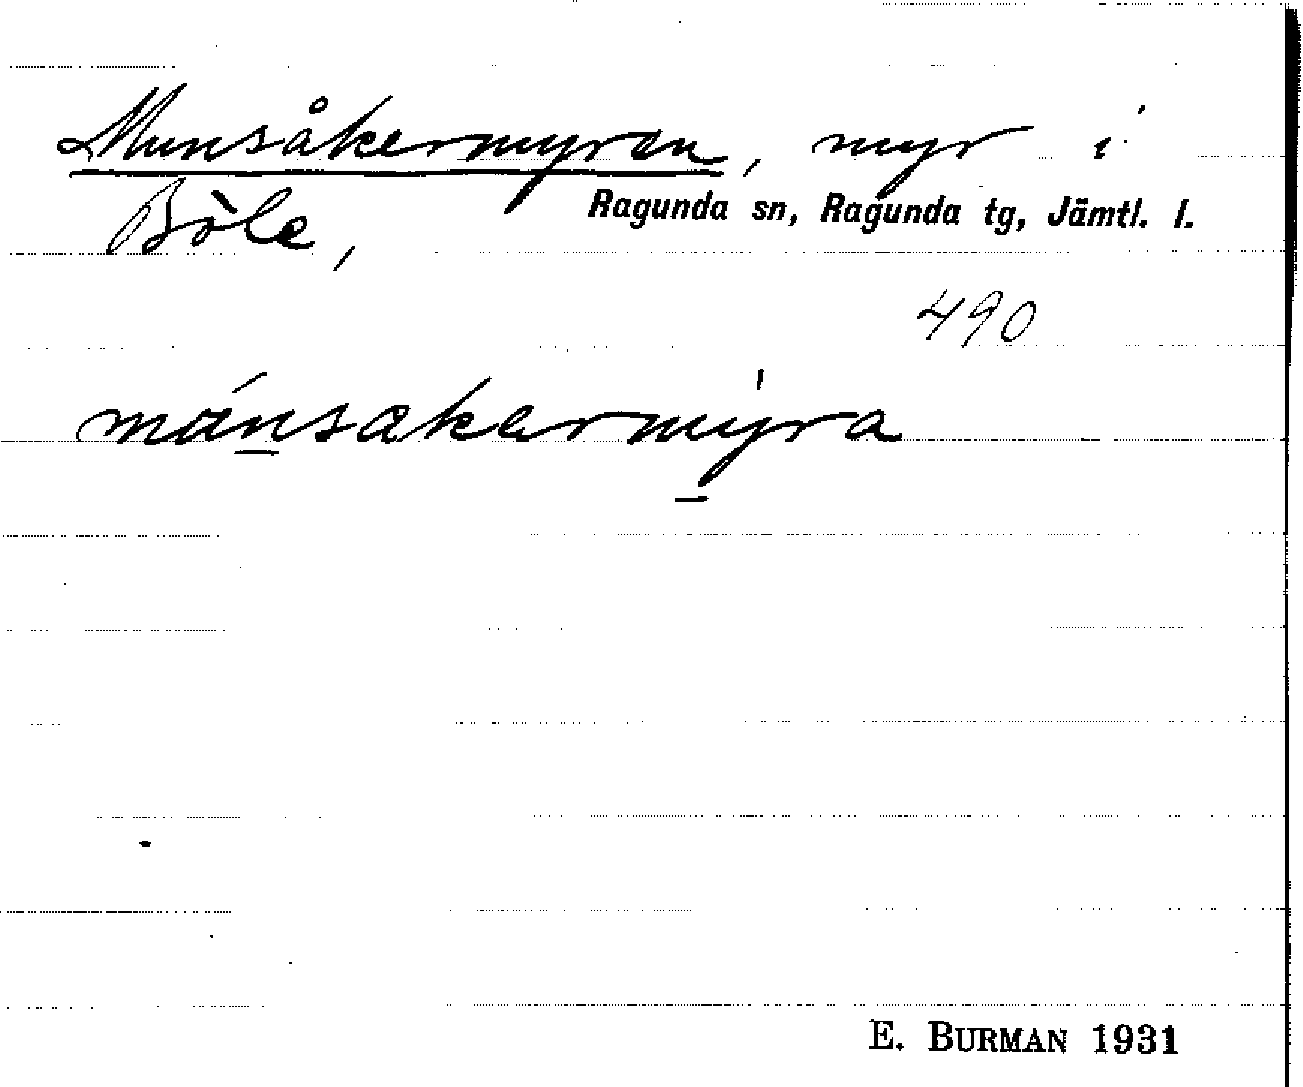 Munsåkermyren, myr i
Böle, Ragunda sn, Ragunda tg, Jämtl. l.
490
mánsakermýra
E. BURMAN 1931